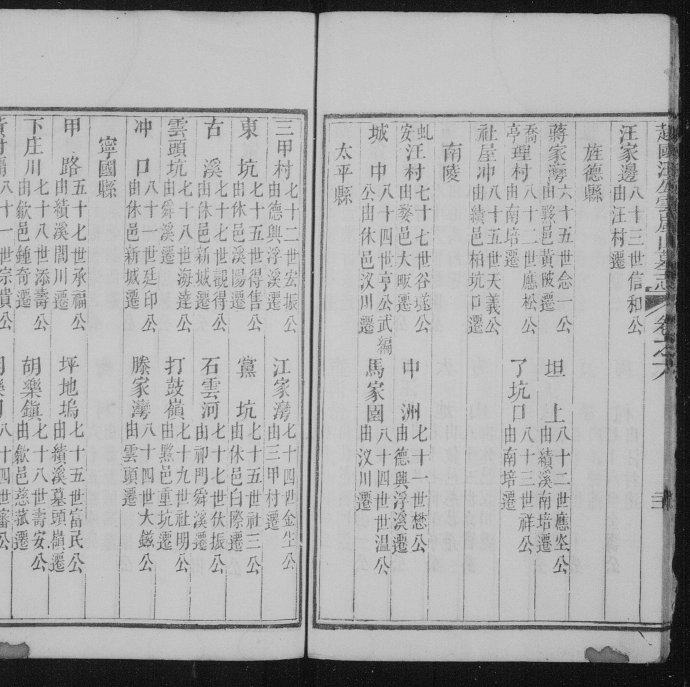 汪家邊 八十三世信和公 由汪村遷
旌德縣
蔣家灣 六十五世念一公 由黟邑黃陂遷 坦上 八十二世應坐公 由績溪南培遷
喬亭理村 八十二世應松公 由南培遷 了坑口 八十三世祥公 由南培遷
社屋冲 八十五世天義公 由績邑柏坑口遷
南陵
虬安汪村 七十七世谷 公 由婺邑大畈遷 中洲 七十一世懋公 由德興浮溪遷
城中 八十四世亨公武編公 由休邑汶川遷 馬家園 八十四世世溫公 由汶川遷
太平縣
三甲村 七十二世宏振公 由德興浮溪遷 江家灣 七十四世金生公 由三甲村遷
東坑 七十五世得售公 由休邑溪陽遷 黨坑 七十五世社三公 由休邑白際遷
古溪 七十七世觀得公 由休邑新城遷 石雲河 七十七世伏振公 由祁門舜溪遷
雲頭坑 七十八世海達公 由舜溪遷 打鼓嶺 七十九世社明公 由黟邑重坑遷
冲口 八十一世廷印公 由休邑新城遷 滕家灣 八十四世大鎡公 由雲頭遷
寧國縣
甲路 五十七世承福公 由績溪閭川遷 坪地塢 七十五世富民公 由績溪墓頭嶺遷
下庄川 七十八世添壽公 由歙邑鍾奇遷 胡樂鎮 七十八世壽安公 由歙邑慈菰遷
八十一世宗貴公 八十四世審公